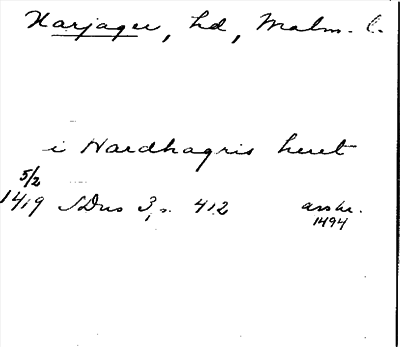 Harjager, hd, Malm. l.
i Hardhagris heret
5/2
1419 SDns 3, s. 412 avskr.
1494